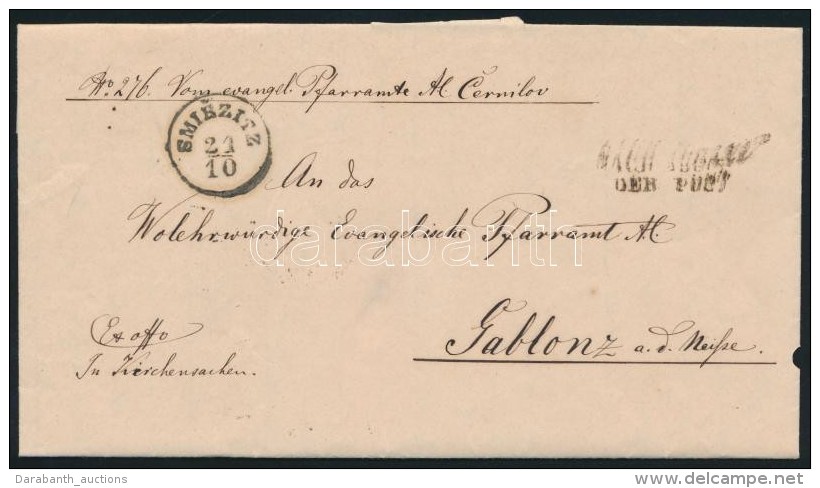 No 276. Vom evangel. Pfarramte AC Černilov
SMIŘZITZ
21
10
NACH ABGANG
DER POST
An das
Wolehrwürdige Evangelische Pfarramt AC.
darabanth
Gablonz a. d. Neiße.
Ex offo
In Kirchensachen.
Darabanth_auctions
delcampe.net